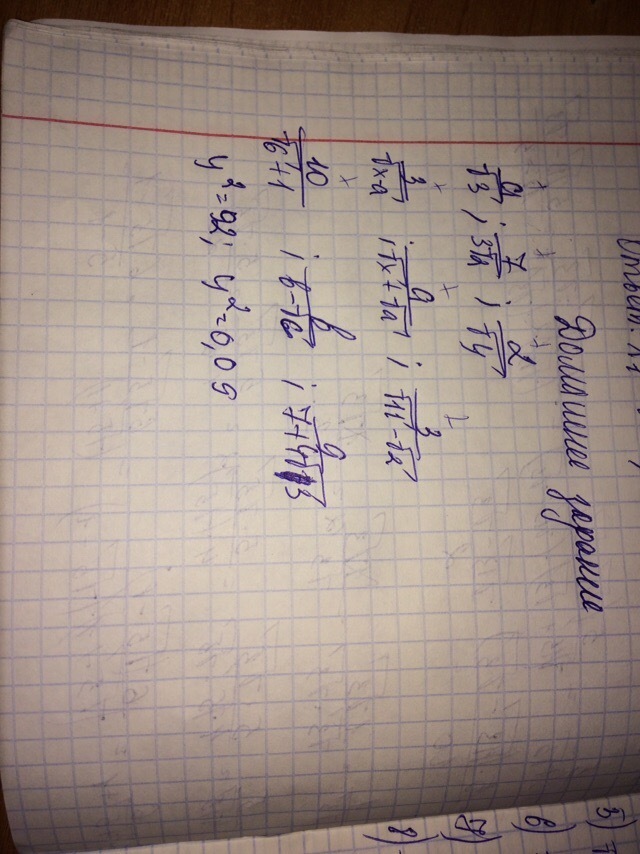 Ответ
Домашнее задание
a/√3 ; 7/3√a ; 2/√y
3/√x-a ; a/√x+√a ; 3/√11-√2
10/√6+1 ; b/b-√c ; 9/7+4√3
y²=92; y²=0,09